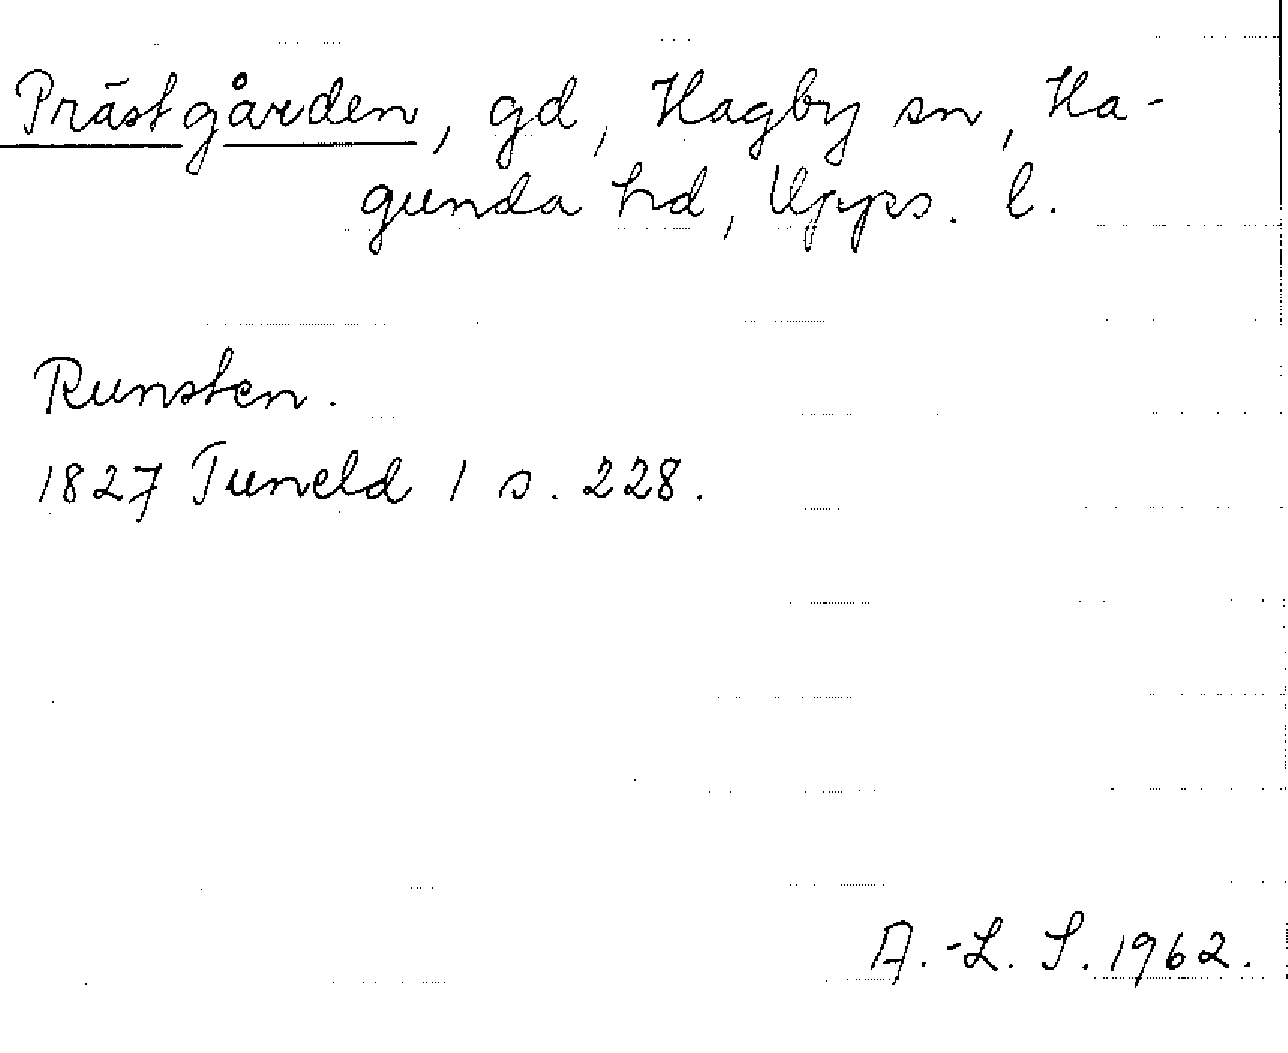 Prästgården, gd, Hagby sn, Ha-
gunda hd, Upps. l.
Runsten.
1827 Tuneld 1 s. 228.
A.-L. S. 1962.